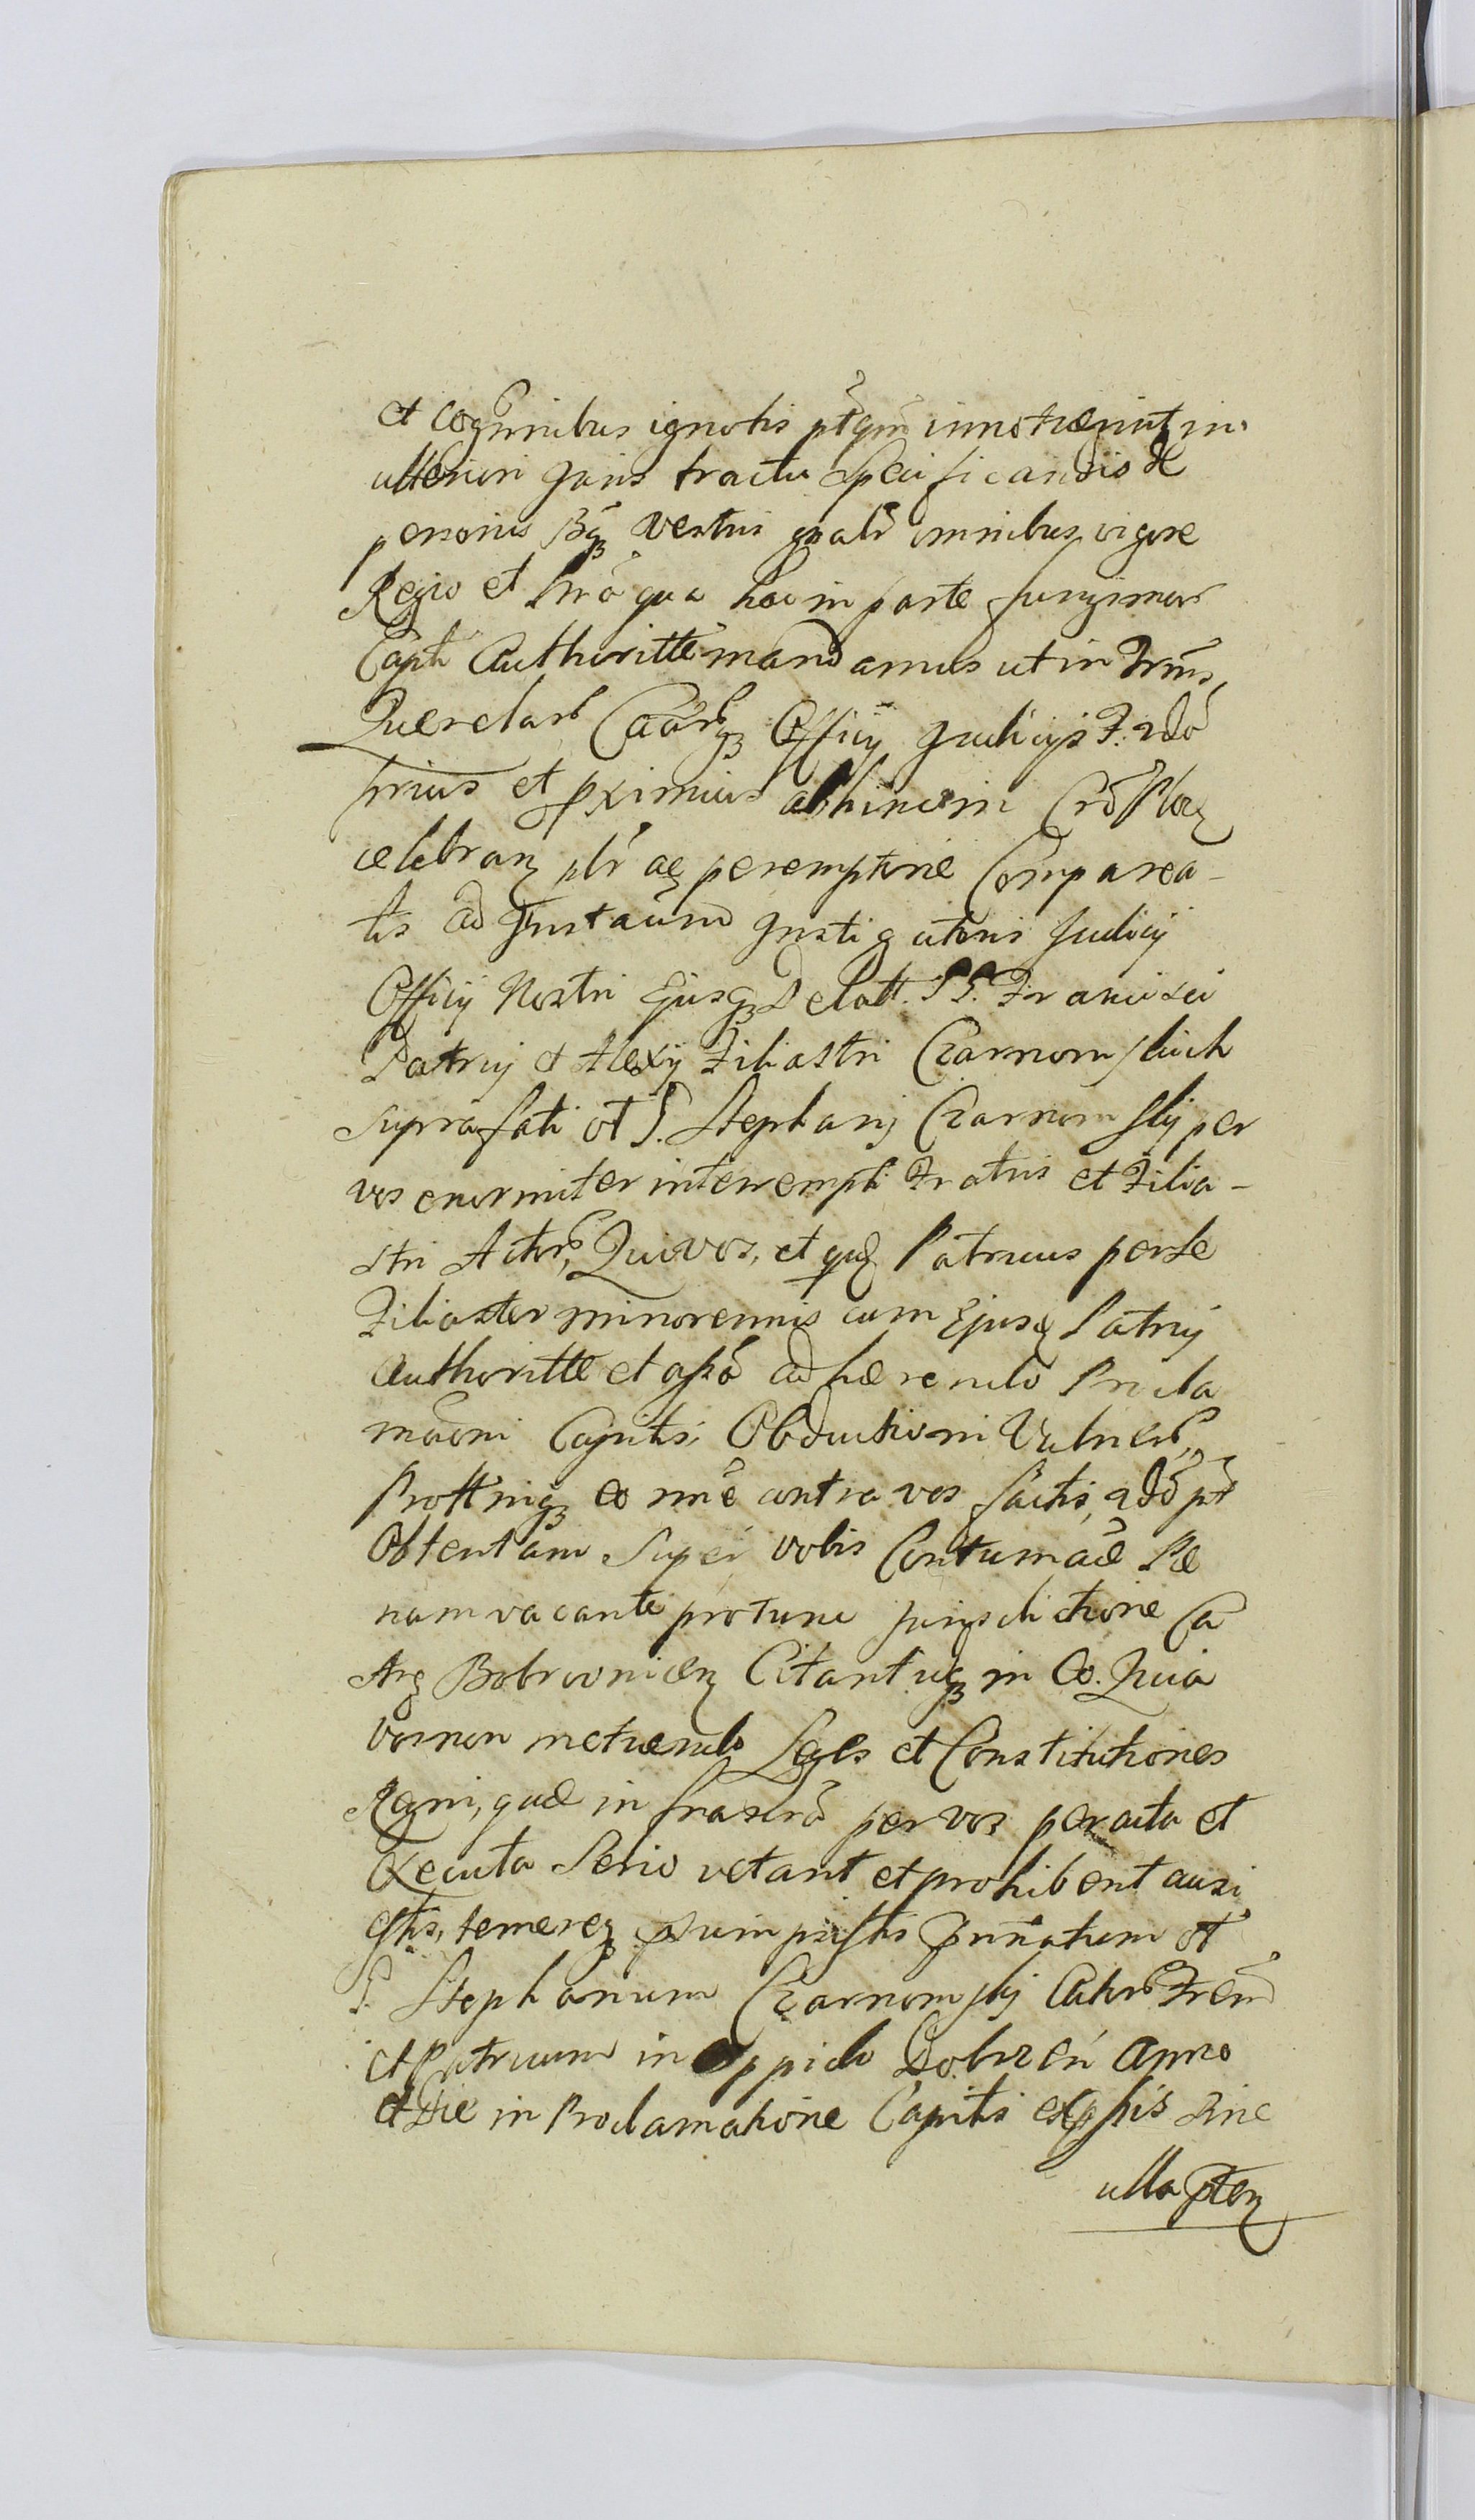 et cognminibus ignotis ptqm innotuerint in
ulteriori Juris tractu Specificandis de
personis Bsq vestris gnalr omnibus vigore
Regio et Nra qua hac in parte fungimur
Capli Authoritte mandamus ut in Trmis
Querelar Caarq Officy Judicijs F: 2do
prius et pximius abhinc in Cro Ploc
celebran plr ac peremptorie Comparea-
tis ad Instaum Instigatoris Judicy
Officy Nostri Ejusq Delatt. SS. Francisci
Patruy et Alexy Filiastri Czarnomskich
suprafati ot S. Stephani Czarnomskij per
vos enormiter interempti Fratris et Filia-
stri Actor, Qui vos, et quid Patruus per se
Filiaster minorennis cum Ejusd Patruy
authoritte et assa adhaerendo Procla
maoni Capitis, Obductioni Vulner,
Prottniq eo nne contra vos factis, 2do pt
Obtentam Super vobis Contumace Pae
nam vacante protunc jurisdictione Ca
str Bobrovnicen Citant uq in Eo. Quia
vos non metuendo Leges et Constitutiones
Regni, quae in frascra per vos peracta et
Executa Serio vetant et prohibent ausi
estis, temereq praesumpsistis Innatum ot
S. Stephanum Czarnomskij Actor Frem
et Patruum in Oppido Dobrzen Anno
et Die in Proclamatione Capitis expssis sine
ulla pten